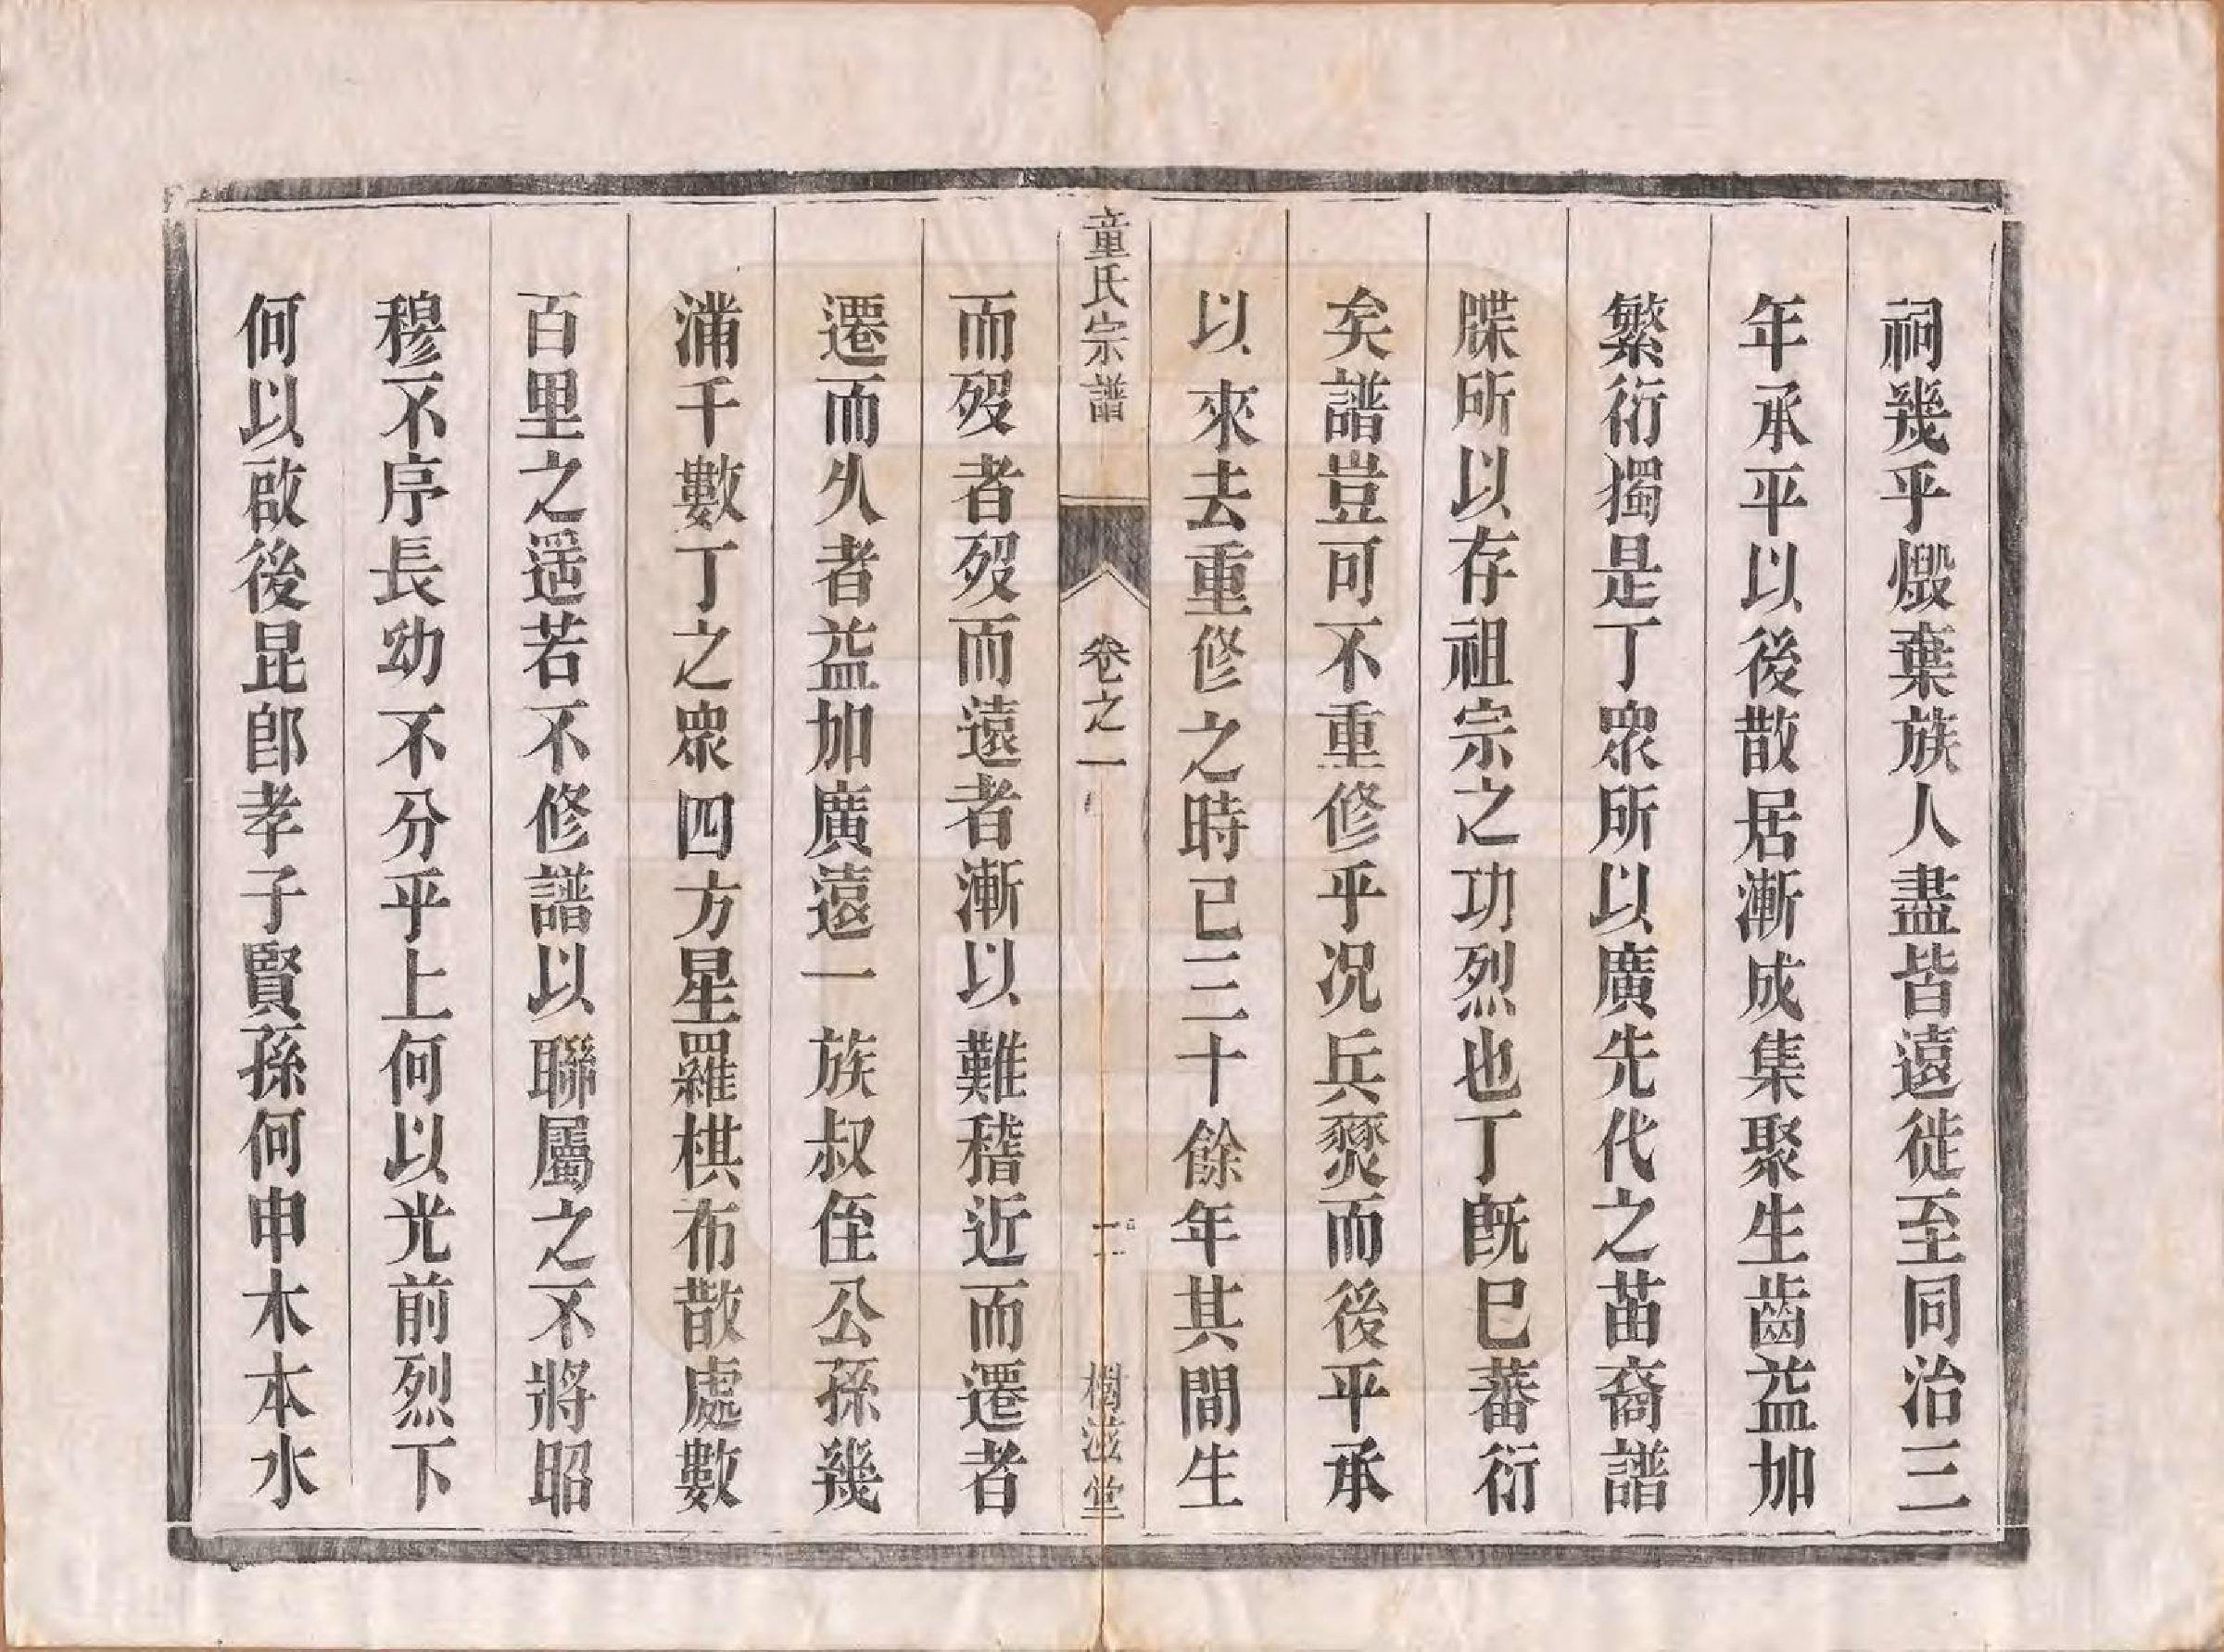 祠幾乎燬棄族人盡皆遠徙至同治三
年承平以後散居漸成集聚生齒益加
繁衍獨是丁眾所以廣先代之苗裔譜
牒所以存祖宗之功烈也丁既巳蕃衍
矣譜豈可不重修乎况兵燹而後平承
以來去重修之時已三十餘年其間生
童氏宗譜
卷之一
樹滋堂
而歿者歿而遠者漸以難稽近而遷者
遷而久者益加廣遠一族叔侄公孫幾
滿千數丁之眾四方星羅棋布散處數
百里之遥若不修譜以聯屬之不將昭
穆不序長幼不分乎上何以光前烈下
何以啟後昆郎孝子賢孫何申木本水